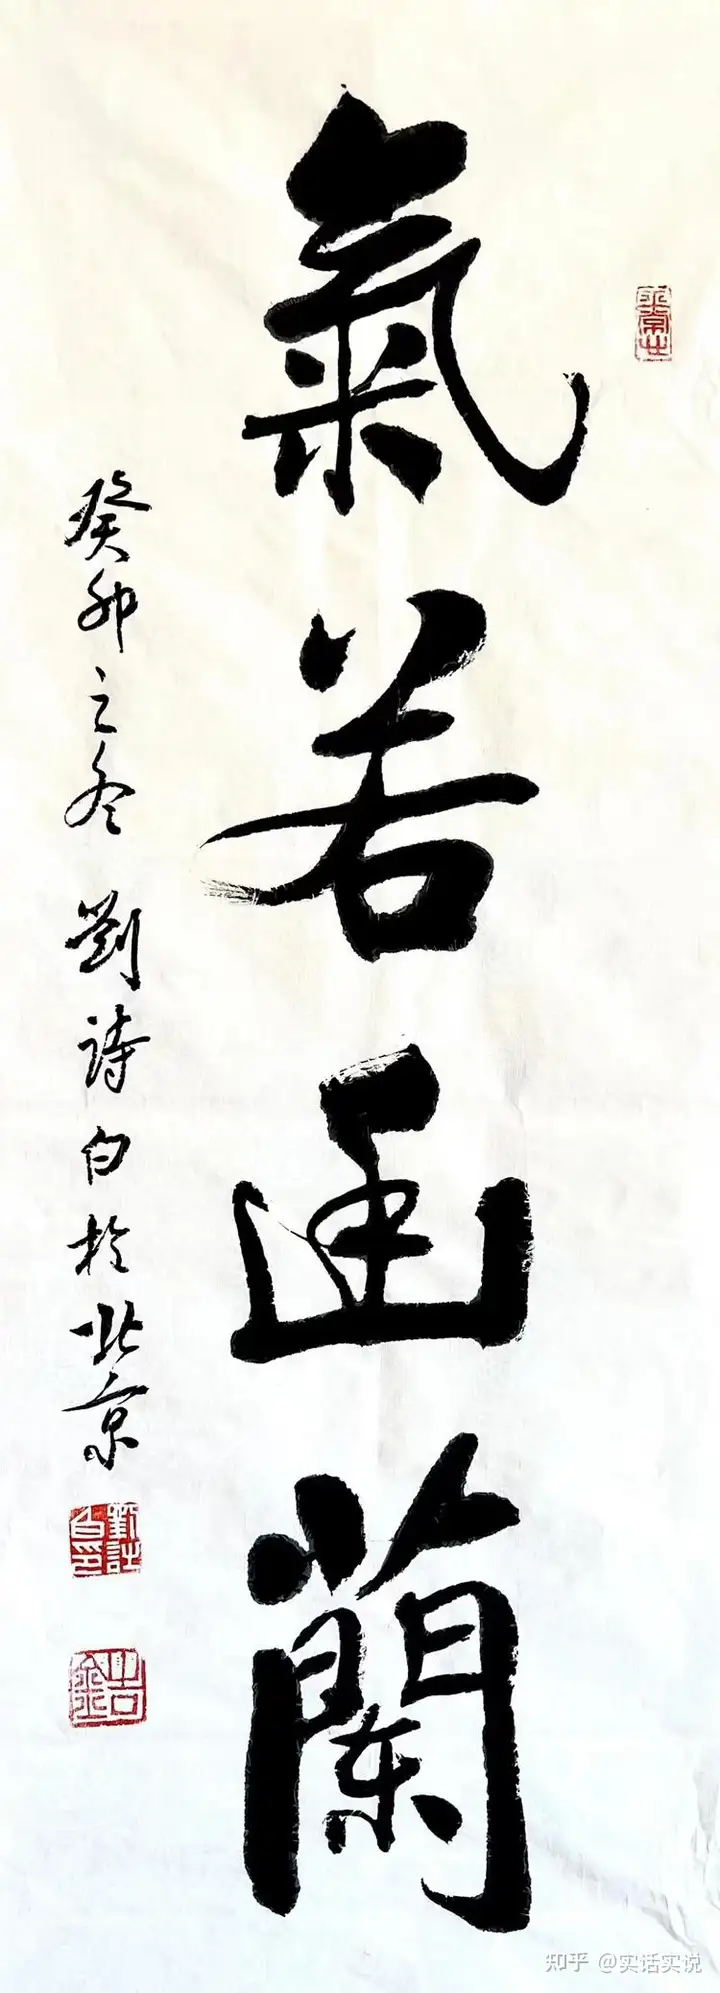 氣若幽蘭
癸卯之冬 劉詩白於北京
劉詩白印
知乎 @实话实说